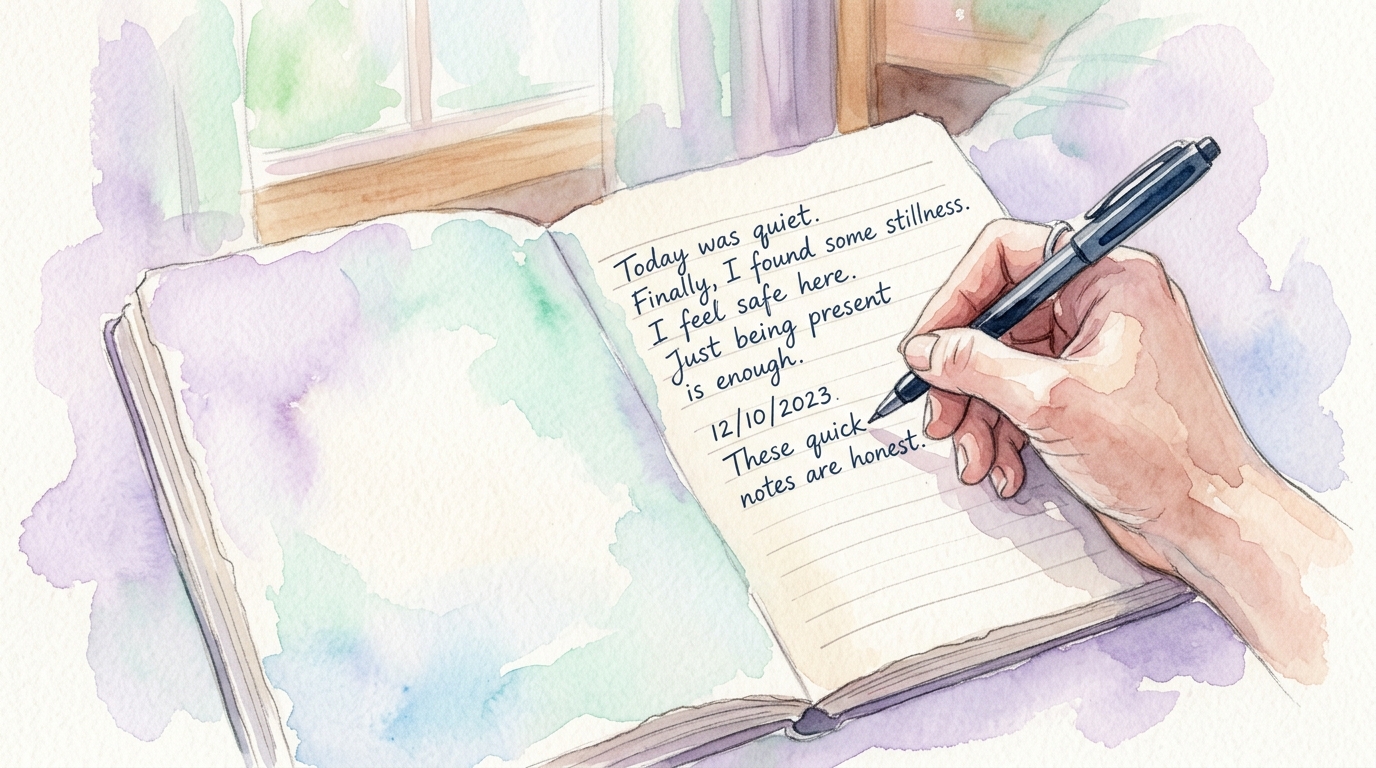 Today was quiet.
Finally, I found some stillness.
I feel safe here.
Just being present
is enough.
12/10/2023.
These quick
notes are honest.